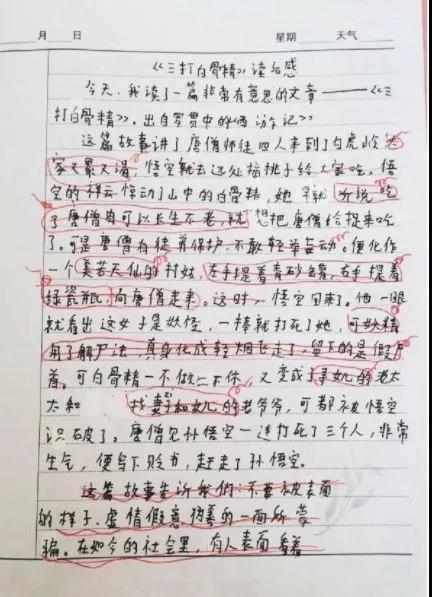 月 日 星期 天气
《三打白骨精》读后感
今天，我读了一篇非常有意思的文章——《三
打白骨精》。出自罗贯中的《西游记》
这篇故事讲了唐僧师徒四人来到了白虎岭，大
家又累又渴，悟空就去远处摘桃子给大家吃，悟
空的祥云惊动了山中的白骨精，她早就听说吃
了唐僧肉可以长生不老，就想把唐僧给捉来吃
了。可是唐僧有徒弟保护，不敢轻举妄动。便化作
一个美若天仙的村姑，左手提着青砂罐，右手提着
绿瓷瓶，向唐僧走来。这时，悟空回来了。他一眼
就看出这女子是妖怪，一棒就打死了她，可妖精
用了解尸法，真身化成轻烟飞走了，留下的是假尸
首。可白骨精一不做二不休，又变成了寻女儿的老太
太和 找妻子和女儿的老爷爷，可都被悟空
识破了。唐僧见孙悟空一连打死了三个人，非常
生气，便写下贬书，赶走了孙悟空。
这篇故事告诉我们：不要被表面
的样子，虚情假意伪善的一面所蒙
骗。在如今的社会里，有人表面看着